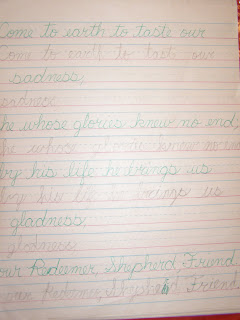 Come to earth to taste our
Come to earth to taste our
sadness,
sadness
he whose glories knew no end;
he whose glories knew no end
by his life he brings us
by his life he brings us
gladness,
gladness
our Redeemer, Shepherd, Friend.
our Redeemer, Shepherd, Friend.